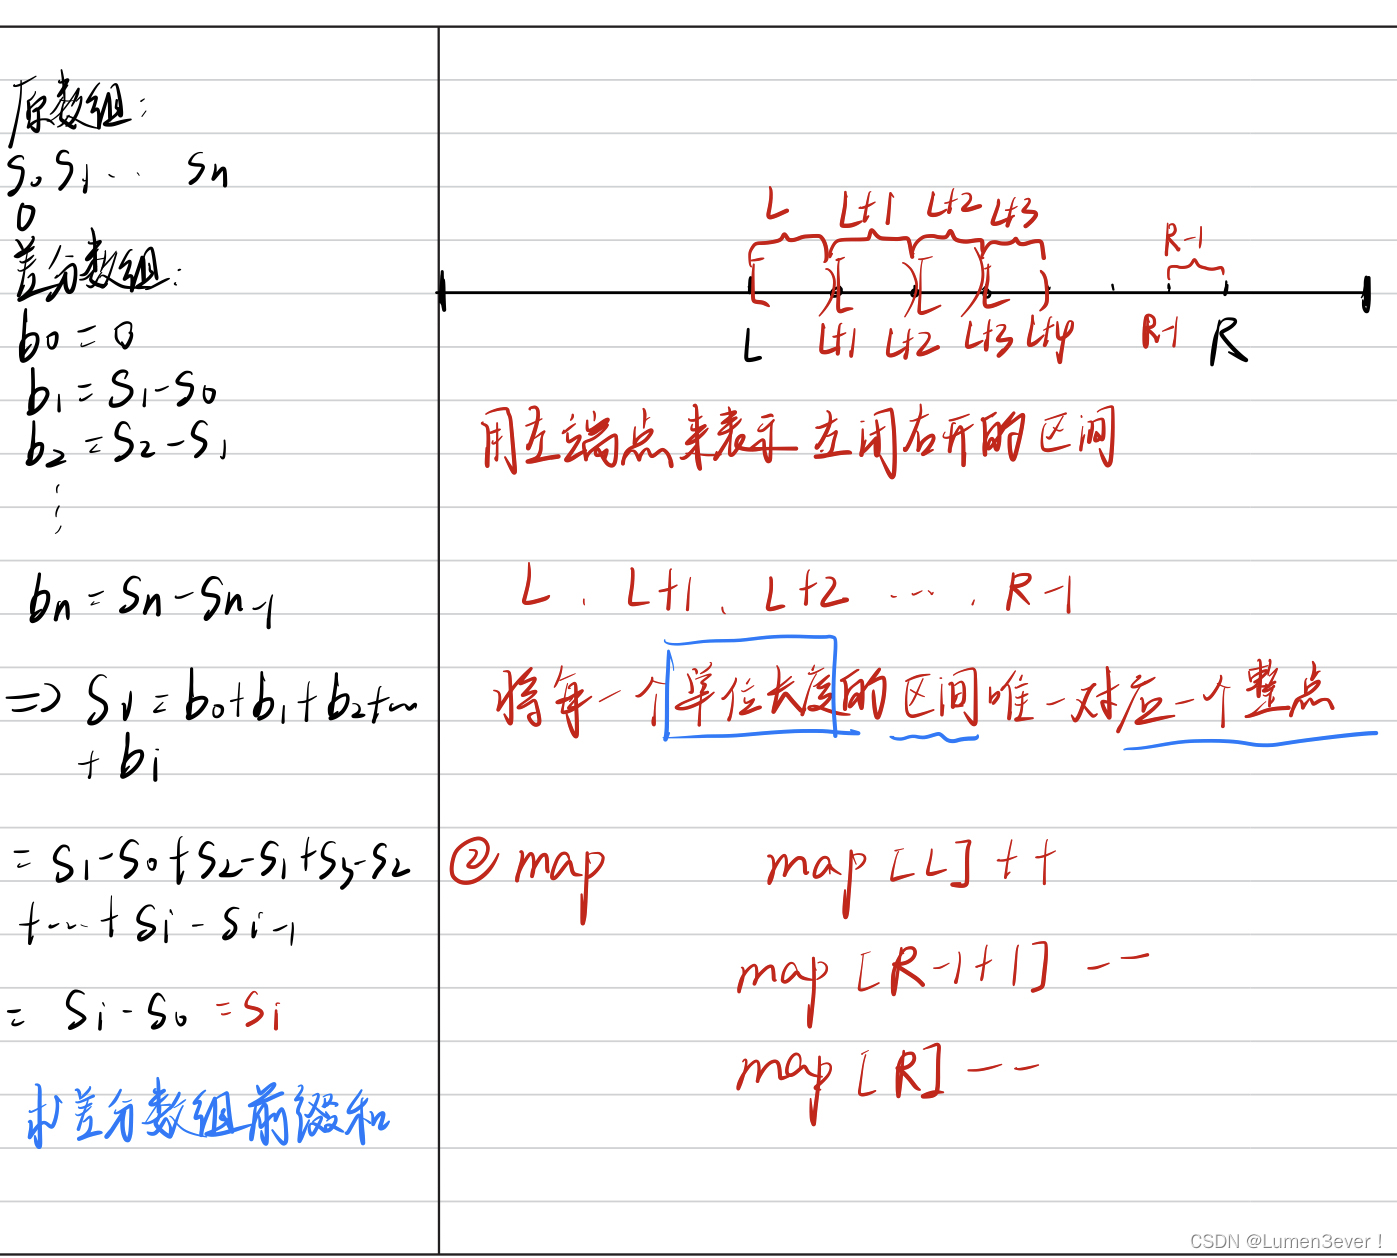 原数组:
S0 S1 ... Sn
0
差分数组:
b0 = 0
b1 = S1-S0
b2 = S2-S1
⋮
bn = Sn-Sn-1
=> Si = b0+b1+b2+...
+ bi
= S1-S0+S2-S1+S3-S2
+...+ Si - Si-1
= Si-S0 = Si
求差分数组前缀和
L L+1 L+2 L+3 R-1
[ )[ )[ )[ )
L L+1 L+2 L+3 L+4 R-1 R
用左端点来表示左闭右开的区间
L、L+1、L+2 ....、R-1
将每一个单位长度的区间唯一对应一个整点
② map map[L]++
map[R-1+1]--
map[R]--
CSDN @Lumen3ever！